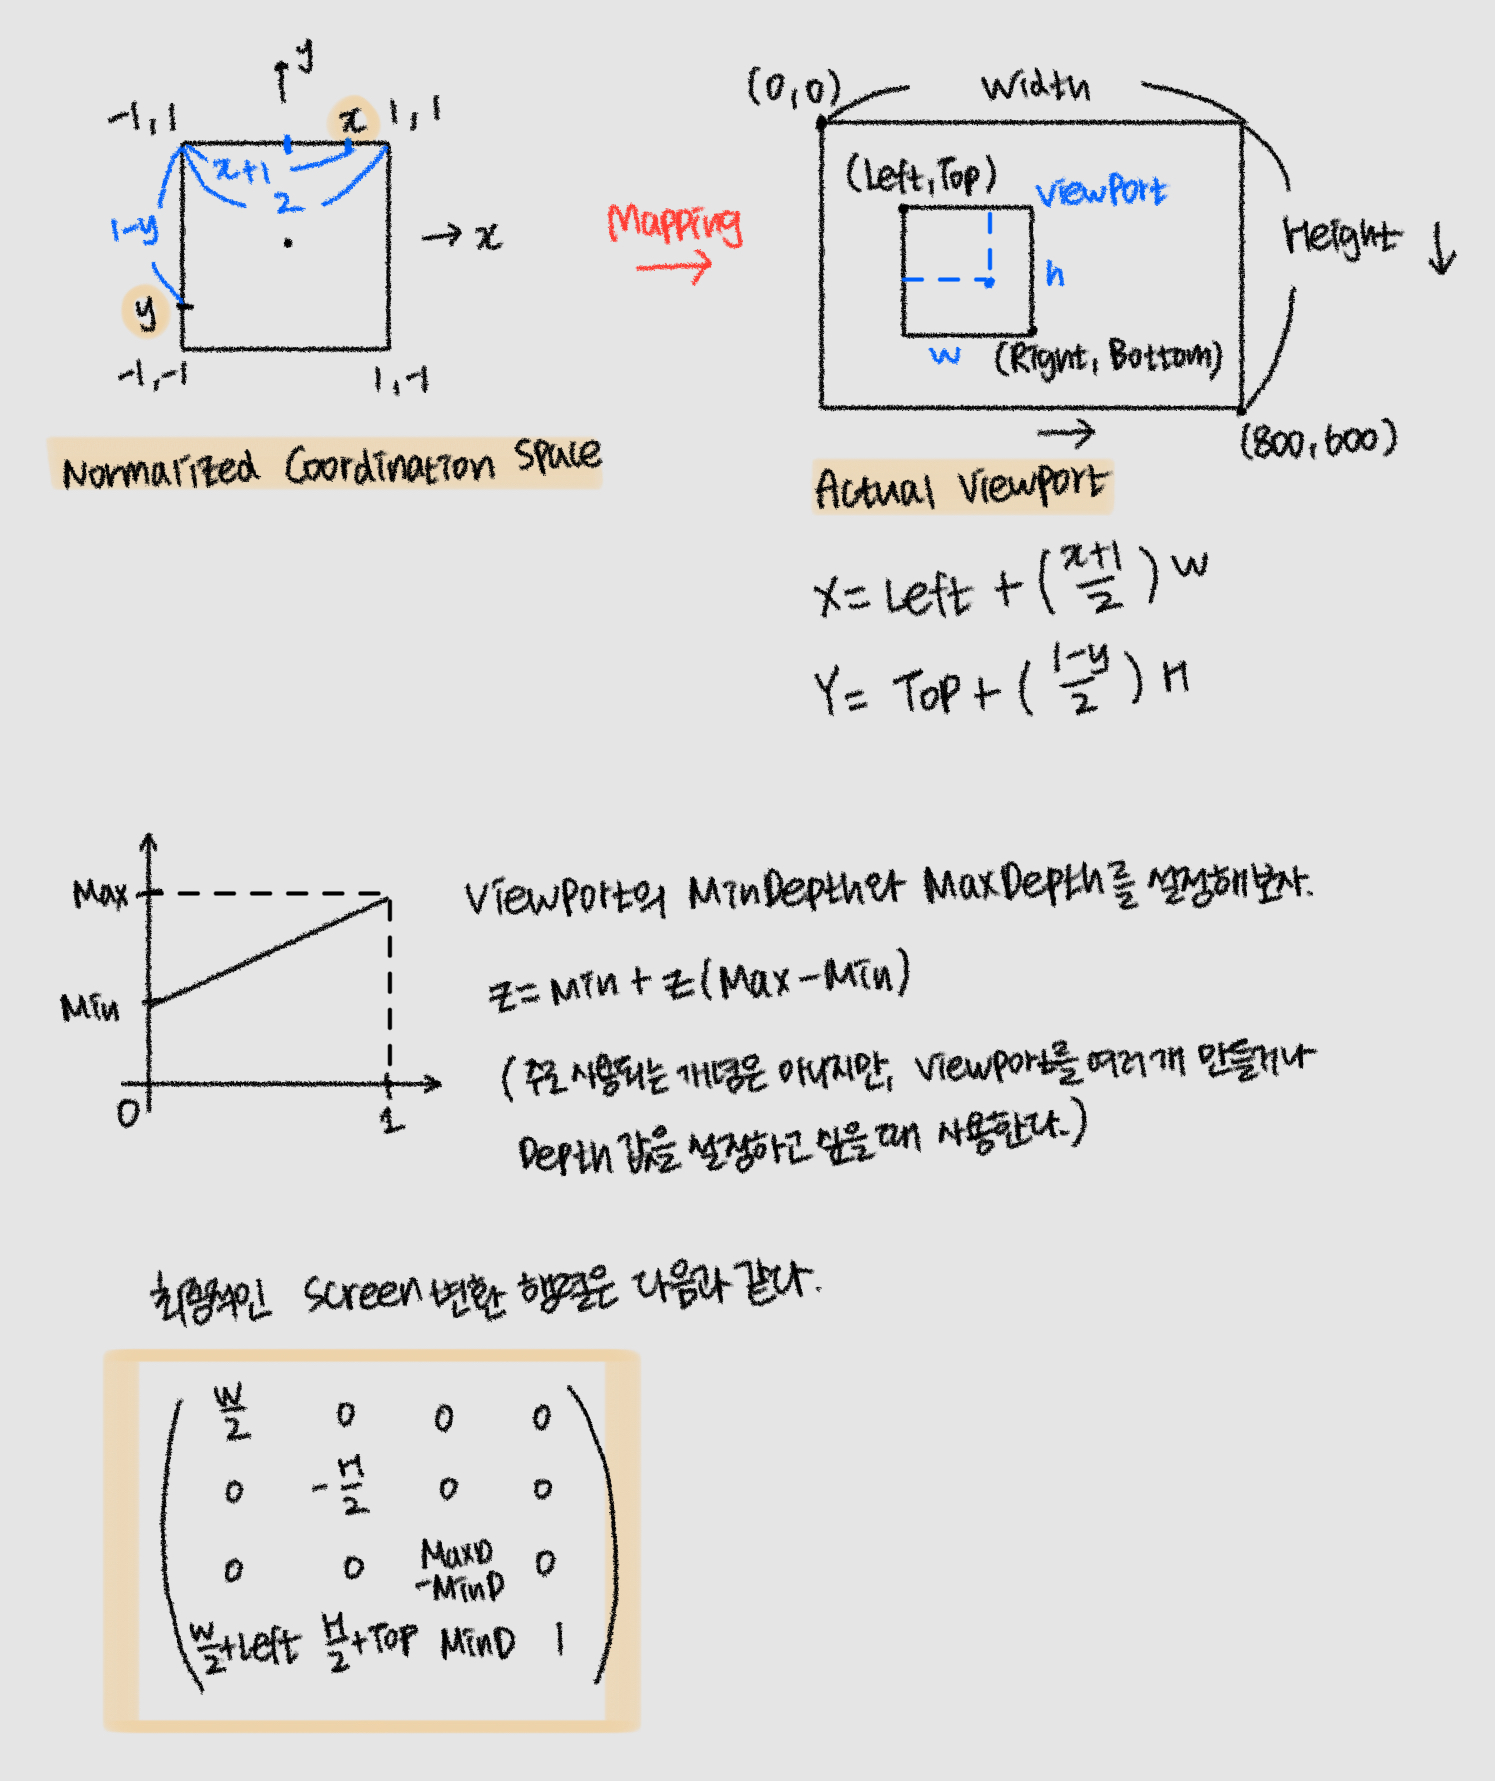 y
-1, 1
x
1, 1
x+1
2
1-y
x
y
-1, -1
1, -1
Normalized Coordination Space
Mapping
(0, 0)
Width
(Left, Top)
Viewport
Height
h
w
(Right, Bottom)
(800, 600)
Actual Viewport
X = Left + (x+1/2) w
Y = Top + (1-y/2) H
Max
Min
0
1
Viewport의 MinDepth와 MaxDepth를 설정해보자.
z = Min + z(Max - Min)
(주로 사용되는 개념은 아니지만, Viewport를 여러개 만들거나
Depth 값을 설정하고 싶을때 사용한다.)
최종적인 Screen 변환 행렬은 다음과 같다.
W/2 0 0 0
0 -H/2 0 0
0 0 MaxD -MinD 0
W/2+Left H/2+Top MinD 1